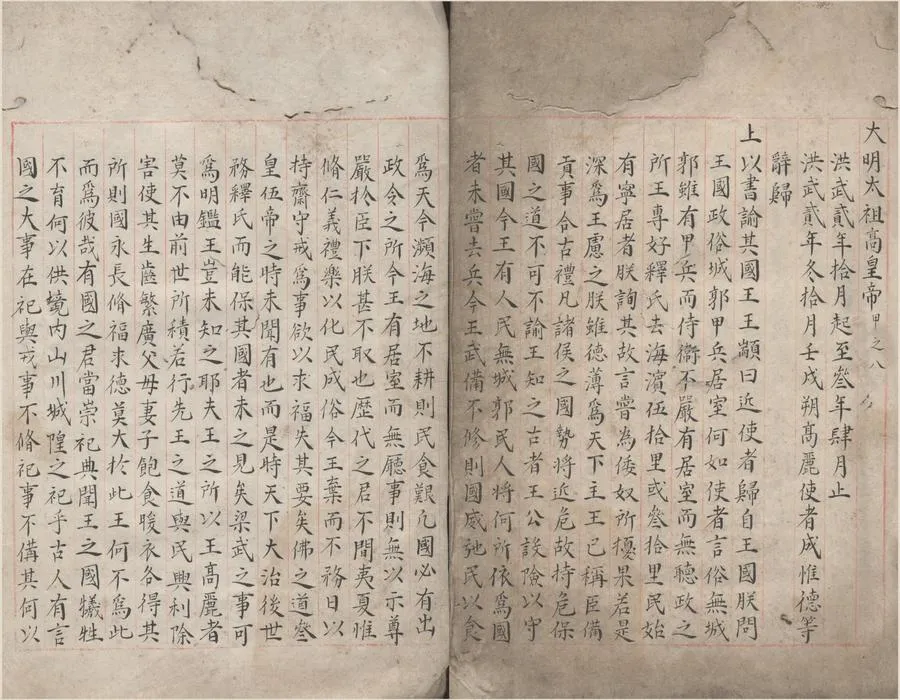 大明太祖高皇帝甲之八
洪武貳年拾月起至叄年肆月止
洪武貳年冬拾月壬戌朔高麗使者成惟德等
辭歸
上以書諭其國王王顓曰近使者歸自王國朕問
王國政俗城郭甲兵居室何如使者言俗無城
郭雖有甲兵而侍衞不嚴有居室而無聽政之
所王專好釋氏去海濵伍拾里或叄拾里民始
有寧居者朕詢其故言嘗為倭奴所擾果若是
深爲王慮之朕雖德薄爲天下主王已稱臣備
貢事合古禮凡諸侯之國勢將近危故持危保
國之道不可不諭王知之古者王公設險以守
其國今王有人民無城郭民人將何所依爲國
者未嘗去兵今王武備不修則國威弛民以食
爲天今瀕海之地不耕則民食艱凢國必有出
政令之所今王有居室而無廳事則無以示尊
嚴扵臣下朕甚不取也歷代之君不間夷夏惟
脩仁義禮樂以化民成俗今王棄而不務日以
持齋守戒爲事欲以求福失其要矣佛之道叄
皇伍帝之時未聞有也而是時天下大治後世
務釋氏而能保其國者未之見矣梁武之事可
爲明鑑王豈未知之耶夫王之所以王高麗者
莫不由前世所積若行先王之道與民興利除
害使其生齒繁廣父母妻子飽食暖衣各得其
所則國永長脩福求德莫大扵此王何不爲此
而爲彼哉有國之君當崇祀典聞王之國犧牲
不育何以供境内山川城隍之祀乎古人有言
國之大事在祀與戎事不脩祀事不備其何以